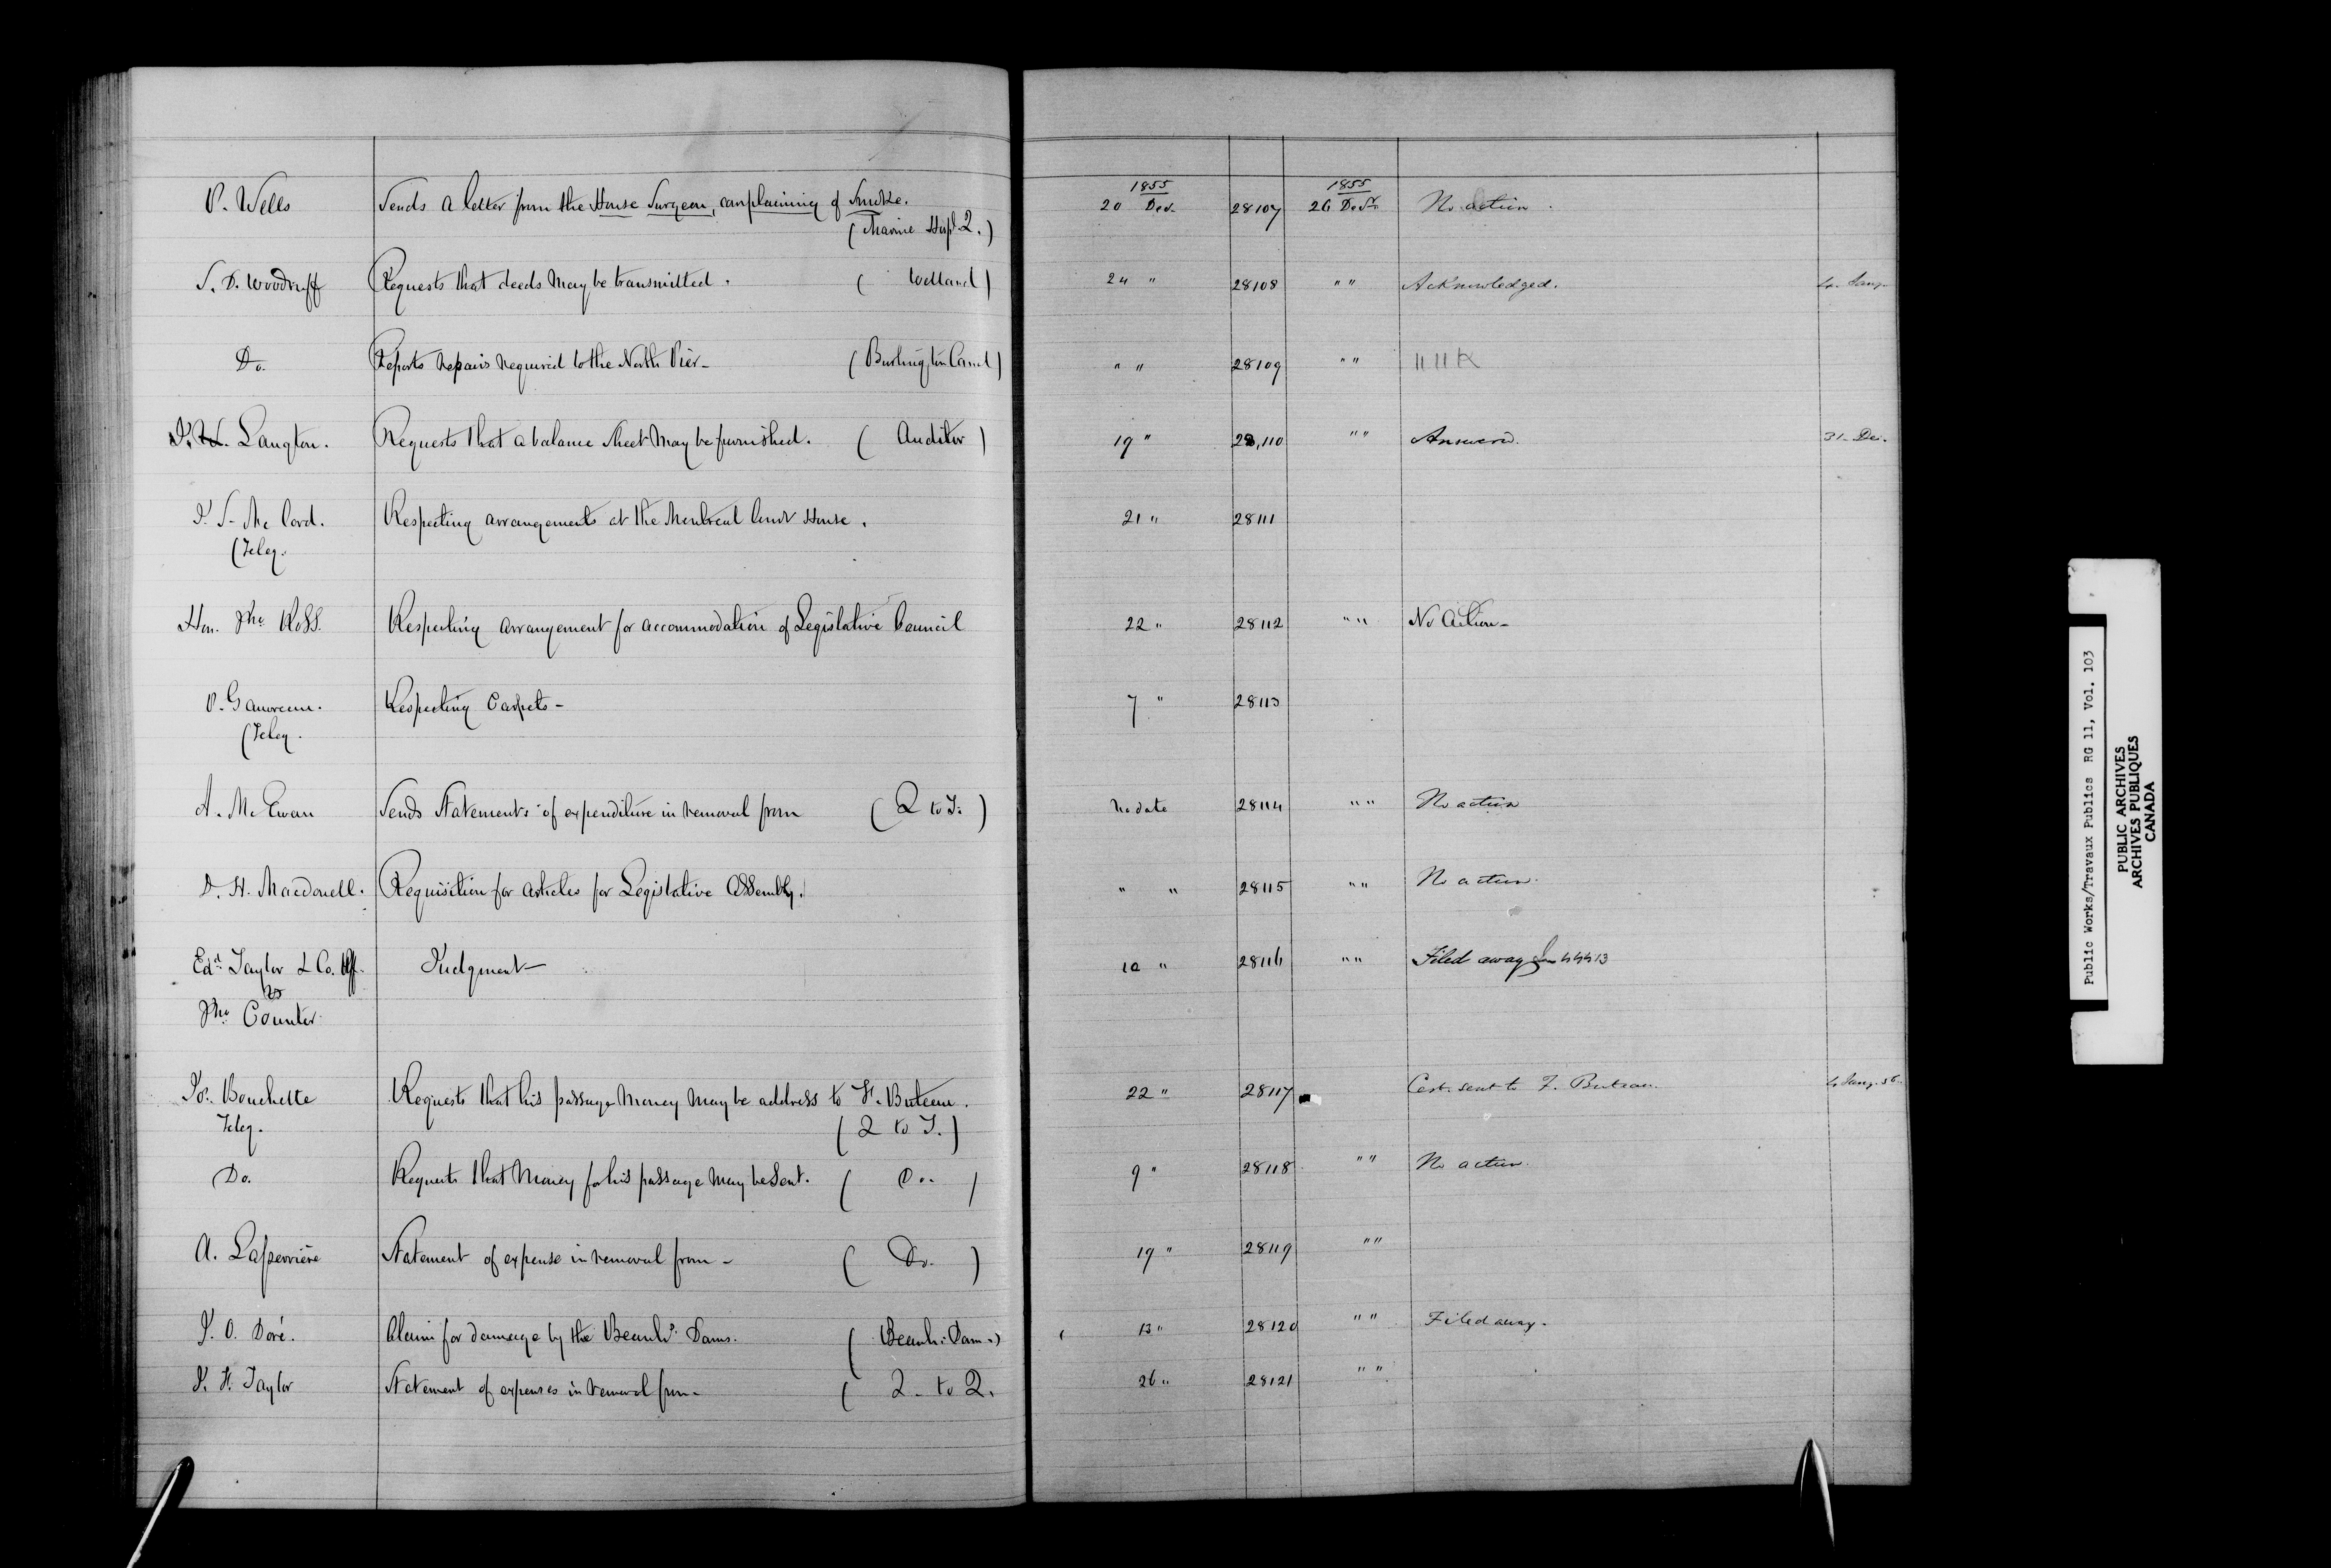 1855 1855
P. Wells Sends a letter from the House Surgeon, complaining of Smoke. 20 Decr 28107 26 Decr No action.
(Marine Hospl. Q.)
S. D. Woodruff Requests that deeds may be transmitted. ( Welland ) 24 " 28108 " " Acknowledged. 4. Jany
Do. Reports repairs required to the North Pier- ( Burlington Canal ) " " 28109 " " " "
Langton. Requests that a balance sheet may be furnished. ( Auditor ) 19 " 28,110 " " Answered. 31- Dec.
J. S. Mc Cord. Respecting arrangements at the Montreal Court House. 21 " 28111
(Teleg.
Hon. Jno Ross. Respecting arrangement for accommodation of Legislative Council 22 " 28112 " " No Action-
P. Gauvreau. Respecting Carpets- 7 " 28113
(Teleg.
A. Mc Ewan Sends Statements of expenditure in removal from ( Q to T. ) No date 28114 " " No action
D. H. Macdonell. Requisition for articles for Legislative Assembly. " " 28115 " " No action.
Edd Taylor & Co. Judgment- 10 " 28116 " " Filed away
vs
Jno Counter
Jos. Bouchette Requests that his passage money may be address to F. Buteau. 22 " 28117 Cert. sent to F. Buteau. 4 Jany. 56
Teleg. ( Q to T. )
Do. Requests that money for his passage may be sent. ( Do. ) 9 " 28118 " " No action.
A. Laperrière Statement of expense in removal from - ( Do. ) 19 " 28119 " "
J. O. Doré. Claim for damage by the Beauhs. Dams. ( Beauh: Dam.) 13 " 28120 " " Filed away.
J. F. Taylor Statement of expenses in removal from- ( Q - to Q. 26 " 28121 " "
Public Works/Travaux Publics RG 11, Vol. 103
PUBLIC ARCHIVES
ARCHIVES PUBLIQUES
CANADA